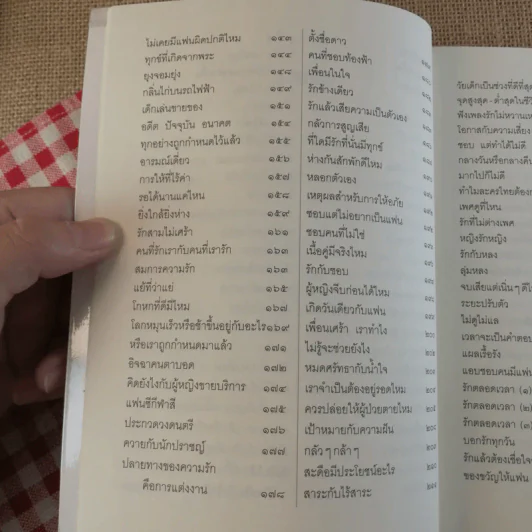 ไม่เคยมีแฟนผิดปกติไหม ๑๔๓
ทุกข์ที่เกิดจากพระ ๑๔๔
ยุงจอมยุ่ง ๑๔๘
กลิ่นไก่บนรถไฟฟ้า ๑๔๙
เด็กเล่นขายของ ๑๕๑
อดีต ปัจจุบัน อนาคต ๑๕๔
ทุกอย่างถูกกำหนดไว้แล้ว ๑๕๕
อารมณ์เดี่ยว ๑๕๖
การให้ที่ไร้ค่า ๑๕๗
รอได้นานแค่ไหน ๑๕๘
ยิ่งใกล้ยิ่งห่าง ๑๕๙
รักสามไม่เศร้า ๑๖๑
คนที่รักเรากับคนที่เรารัก ๑๖๓
สมการความรัก ๑๖๓
แย้ที่ว่าแย่ ๑๖๕
โกหกที่ดีมีไหม ๑๖๗
โลกหมุนเร็วหรือช้าขึ้นอยู่กับอะไร ๑๖๙
หรือเราถูกกำหนดมาแล้ว ๑๗๑
อิจฉาคนตาบอด ๑๗๒
คิดยังไงกับผู้หญิงขายบริการ ๑๗๔
แฟนซีกีฬาสี ๑๗๕
ประกวดวงดนตรี ๑๗๖
ควายกับนักปราชญ์ ๑๗๗
ปลายทางของความรัก
คือการแต่งงาน ๑๗๘
ตั้งชื่อดาว
คนที่ชอบท้องฟ้า
เพื่อนในใจ
รักข้างเดียว
รักแล้วเสียความเป็นตัวเอง
กลัวการสูญเสีย
ที่ใดมีรักที่นั่นมีทุกข์
ห่างกันสักพักดีไหม
หลอกตัวเอง
เหตุผลสำหรับการให้อภัย
ชอบแต่ไม่อยากเป็นแฟน
ชอบคนที่ไม่ใช่
เนื้อคู่มีจริงไหม
รักกับชอบ
ผู้หญิงจีบก่อนได้ไหม
เกิดวันเดียวกับแฟน
เพื่อนเศร้า เราทำไง
ไม่รู้จะช่วยยังไง
หมดศรัทธากับน้ำใจ
เราจำเป็นต้องอยู่รอดไหม
ควรปล่อยให้ผู้ป่วยตายไหม
เป้าหมายกับความฝัน
กลัว ๆ กล้า ๆ
สะดือมีประโยชน์อะไร
สาระกับไร้สาระ
วัยเด็กเป็นช่วงที่ดีที่สุด
จุดสูงสุด - ต่ำสุดในชีวิ
ฟังเพลงรักไม่หวานแห
โอกาสกับความเสี่ยง
ชอบ แต่ทำได้ไม่ดี
กลางวันหรือกลางคืน
มากไปก็ไม่ดี
ทำไมละครไทยต้อง
เพศคู่ที่ไหน
รักที่ไม่ต่างเพศ
หญิงรักหญิง
รักกับหลง
ลุ่มหลง
จบเสียแต่เนิ่น ๆ ดี
ระยะปรับตัว
ไม่ดูไม่แล
เวลาจะเป็นคำตอบ
แผลเรื้อรัง
แอบชอบคนมีแฟน
รักตลอดเวลา (๑)
รักตลอดเวลา (๒)
รักตลอดเวลา (๓)
บอกรักทุกวัน
รักแล้วต้องเชื่อใจ
ของขวัญให้แฟน